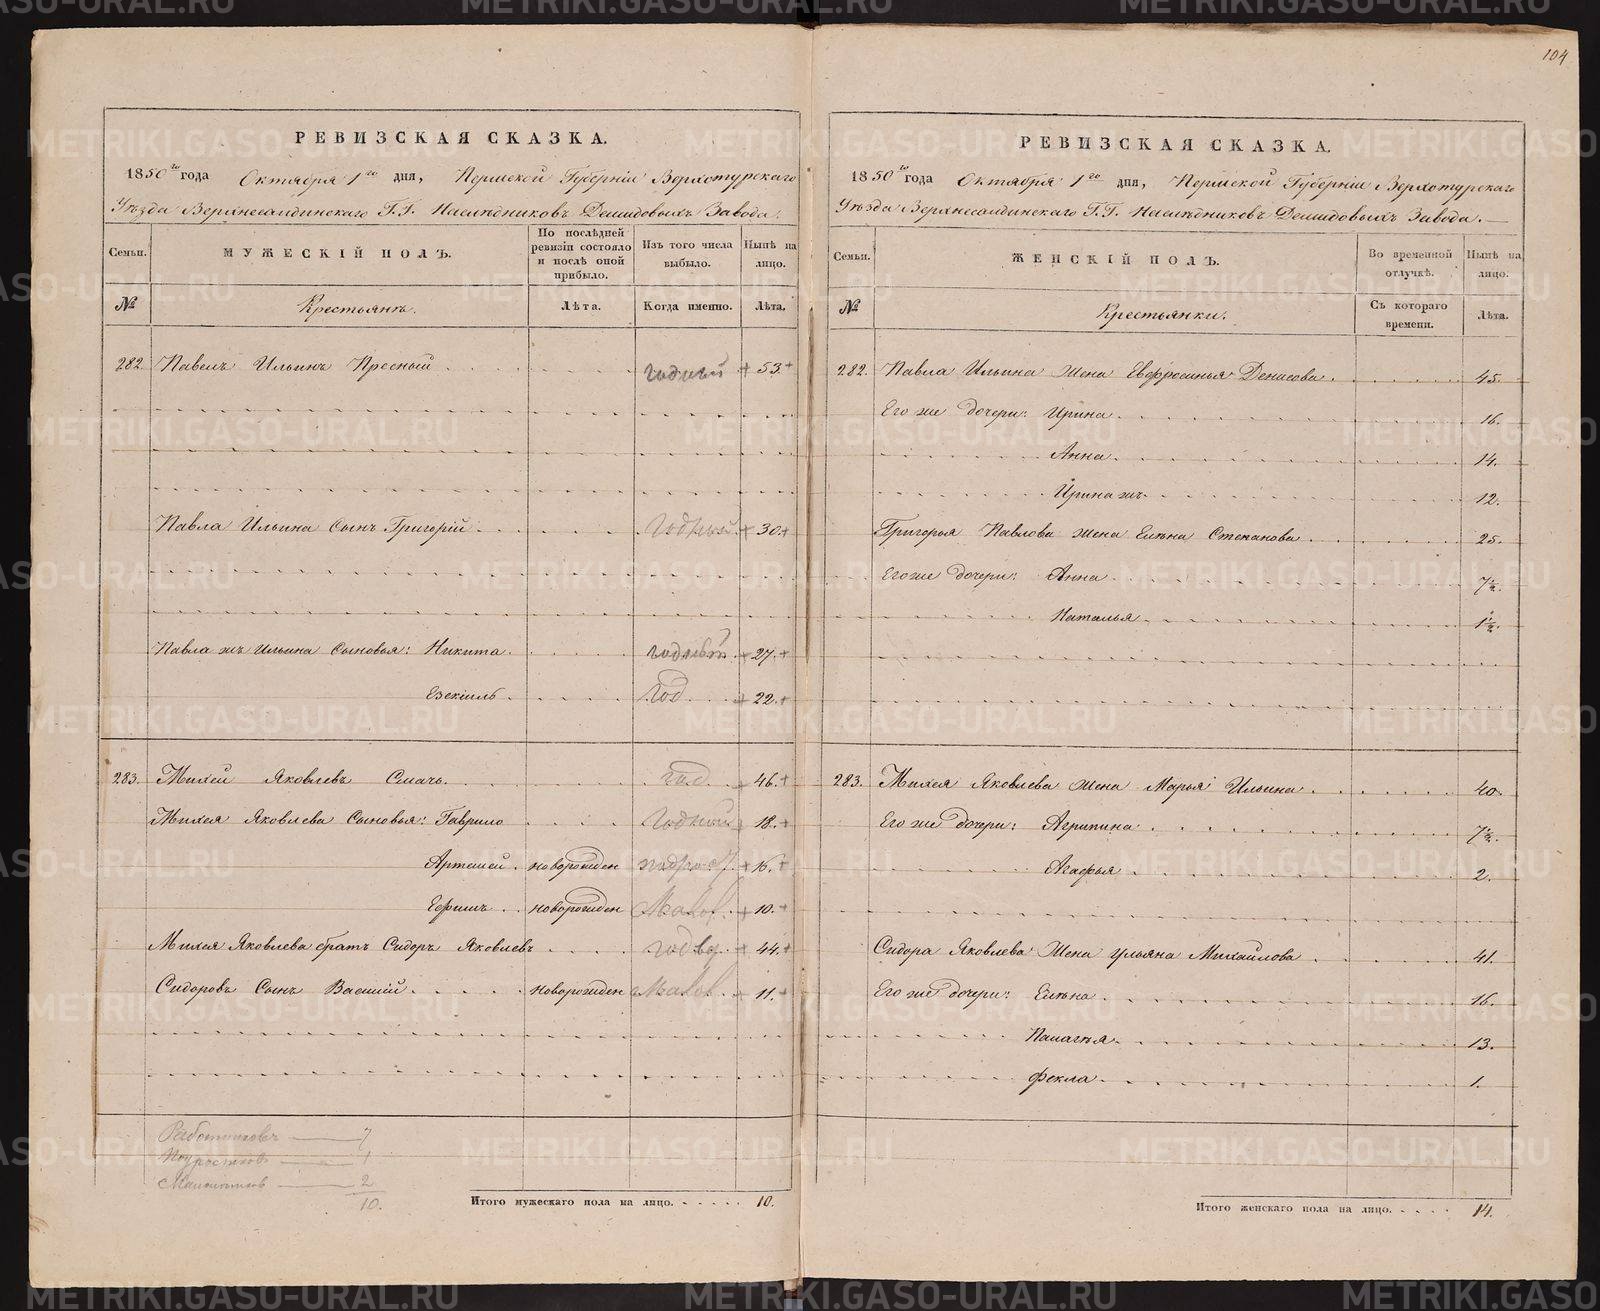 104
РЕВИЗСКАЯ СКАЗКА.
1850го года Октября 1го дня, Пермской Губерніи Верхотурскаго
Уѣзда Верхнесалдинскаго Г.Г. Наслѣдниковъ Демидовыхъ Завода.
Семьи. МУЖЕСКІЙ ПОЛЪ. По послѣдней ревизіи состояло и послѣ оной прибыло. Изъ того числа выбыло. Нынѣ на лицо.
№ Крестьянъ. Лѣта. Когда именно. Лѣта.
282. Павелъ Ильинъ Пресный годный 53.
Павла Ильина Сынъ Григорій годный 30.
Павла жъ Ильина Сыновья: Никита годный 27.
Езекіиль год 22.
283. Михей Яковлевъ Смачь. год 46.
Михея Яковлева Сыновья: Гаврило годный 18.
Артемій новорожден подрост 16.
Ефимъ новорожден Малол. 10.
Михея Яковлева братъ Сидоръ Яковлевъ 44.
Сидоровъ Сынъ Василій новорожден Малол. 11.
Работниковъ — 7
Подростковъ — 1
Малолѣтковъ — 2
10.
Итого мужескаго пола на лицо. 10.
РЕВИЗСКАЯ СКАЗКА.
1850го года Октября 1го дня, Пермской Губерніи Верхотурскаго
Уѣзда Верхнесалдинскаго Г.Г. Наслѣдниковъ Демидовыхъ Завода.
Семьи. ЖЕНСКІЙ ПОЛЪ. Во временной отлучкѣ. Нынѣ на лицо.
№ Крестьянки. Съ котораго времени. Лѣта.
282. Павла Ильина жена Евфросинья Денисова 45.
Его же дочери: Ирина 16.
Анна 14.
Ирина жъ 12.
Григорья Павлова жена Елѣна Степанова 25.
Его же дочери: Анна 7½.
Наталья 1½.
283. Михея Яковлева жена Марья Ильина 40.
Его же дочери: Агрипина 7½.
Агафья 2.
Сидора Яковлева жена Ульяна Михайлова 41.
Его же дочери: Елѣна 16.
Палагѣя 13.
Фекла 1.
Итого женскаго пола на лицо. 14.
METRIKI.GASO-URAL.RU